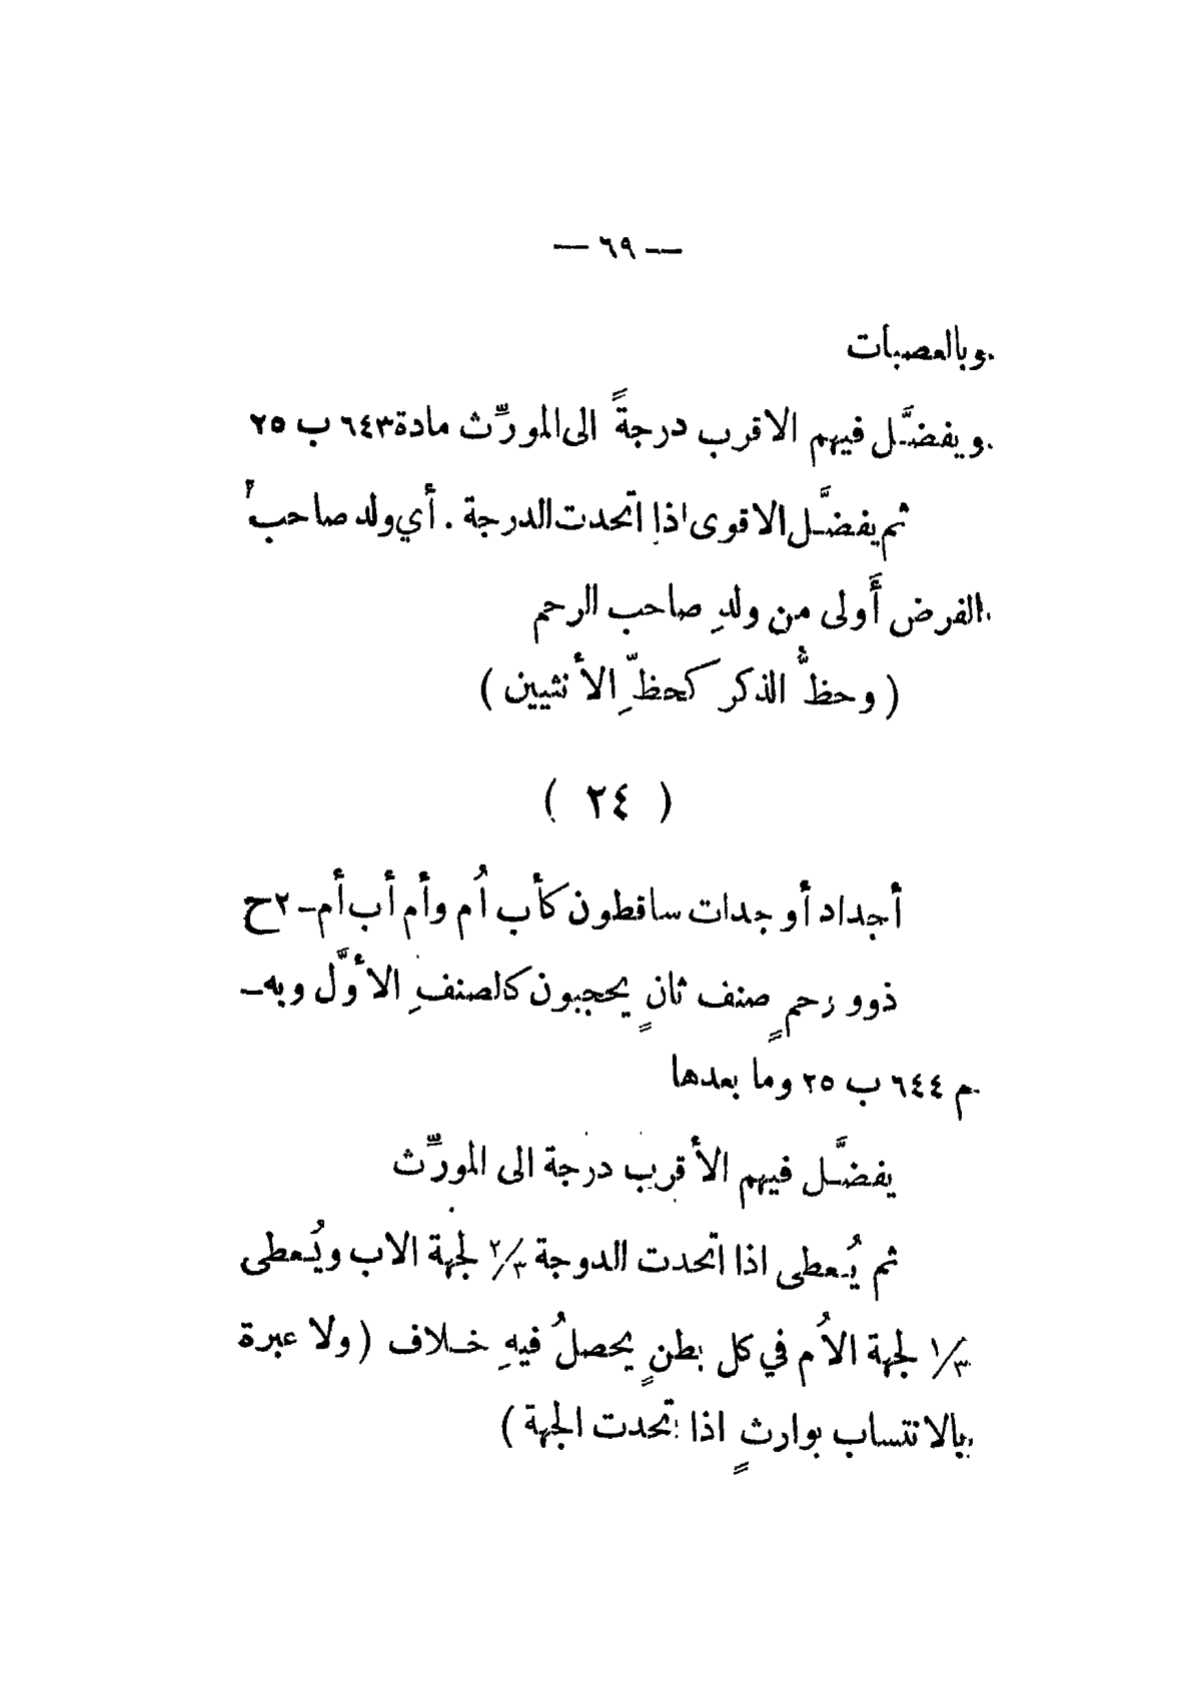 — ٦٩ —
وبالعصبات
ويفضَّل فيهم الاقرب درجةً الى المورِّث مادة ٦٤٣ ب ٢٥
ثم يفضَّل الاقوى اذا اتحدت الدرجة . أي ولد صاحب
الفرض أَولى من ولدِ صاحب الرحم
( وحظُّ الذكر كحظِّ الأنثيين )
( ٢٤ )
أجداد أو جدات ساقطون كأب اُم وأم أب أم ــ ٢ ح
ذوو رحمٍ صنف ثانٍ يحجبون كالصنفِ الأوَّل وبه ــ
م ٦٤٤ ب ٢٥ وما بعدها
يفضَّل فيهم الأقرب درجة الى المورِّث
ثم يُعطى اذا اتحدت الدوجة ٢/٣ لجهة الاب ويُعطى
١/٣ لجهة الاُم في كل بطنٍ يحصلُ فيهِ خلاف ( ولا عبرة
بالانتساب بوارثٍ اذا اتحدت الجهة )